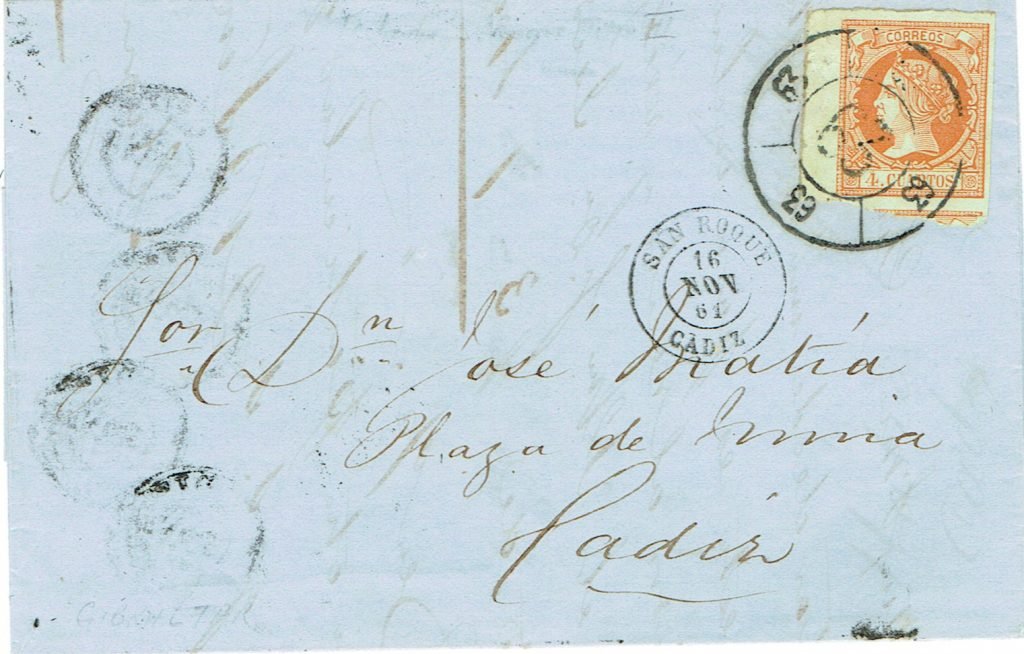 CORREOS
4 CUARTOS
63
63
63
63
SAN ROQUE
16
NOV
61
CÁDIZ
Sor. Dn. José Matía
Plaza de Mina
Cadiz
GIBRALTAR